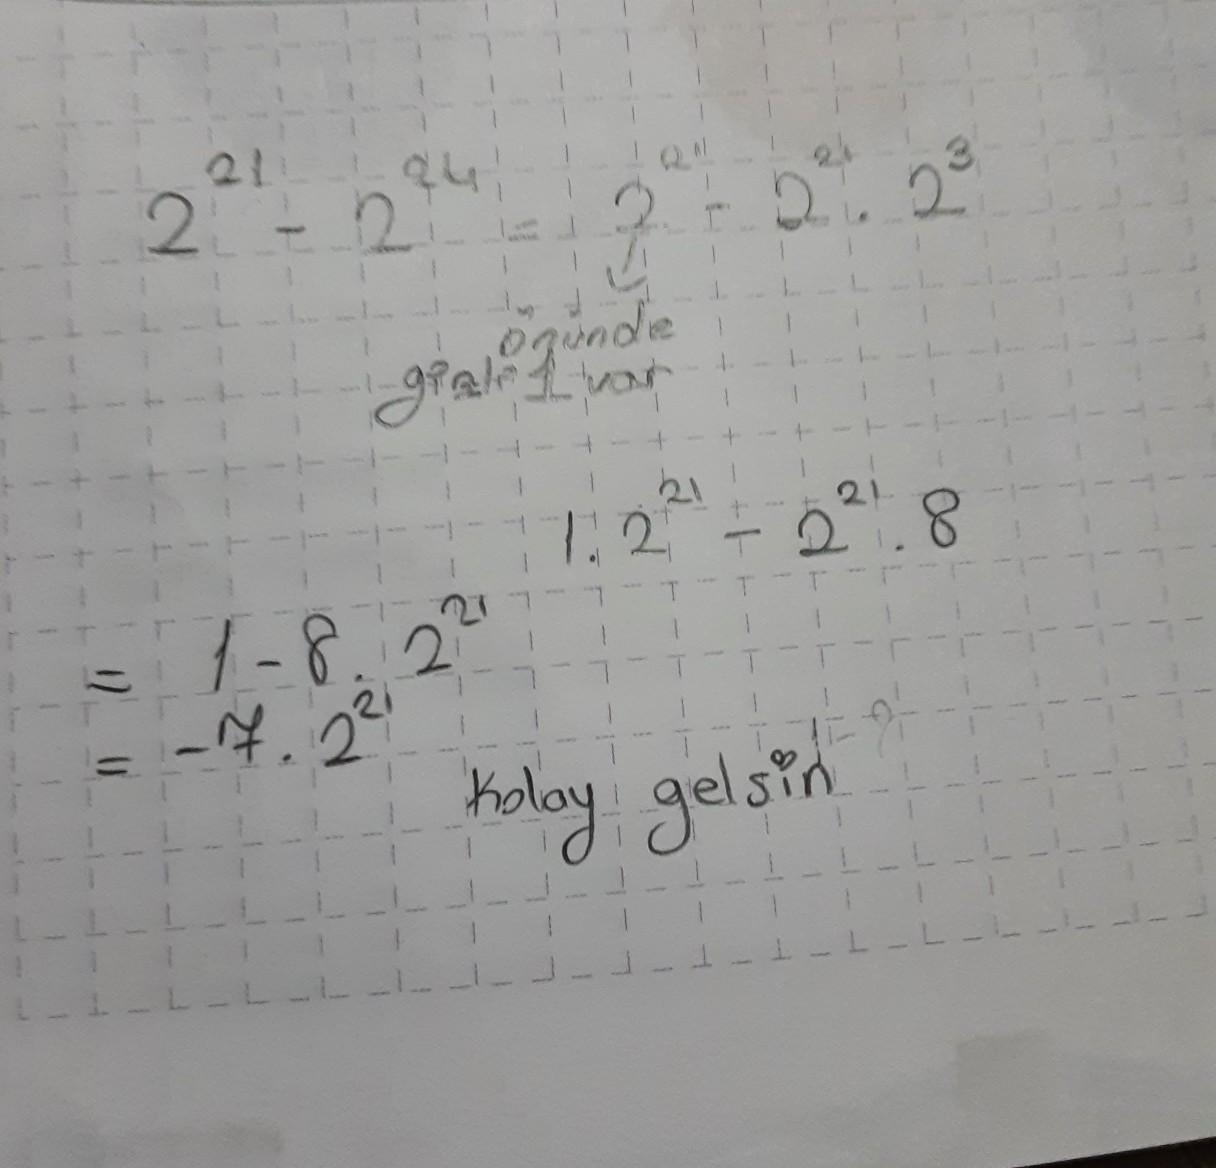 2²¹ - 2²⁴ = 2²¹ - 2²¹ . 2³
önünde
gizli 1 var
1. 2²¹ - 2²¹ . 8
= 1 - 8 . 2²¹
= -7 . 2²¹
Kolay gelsin